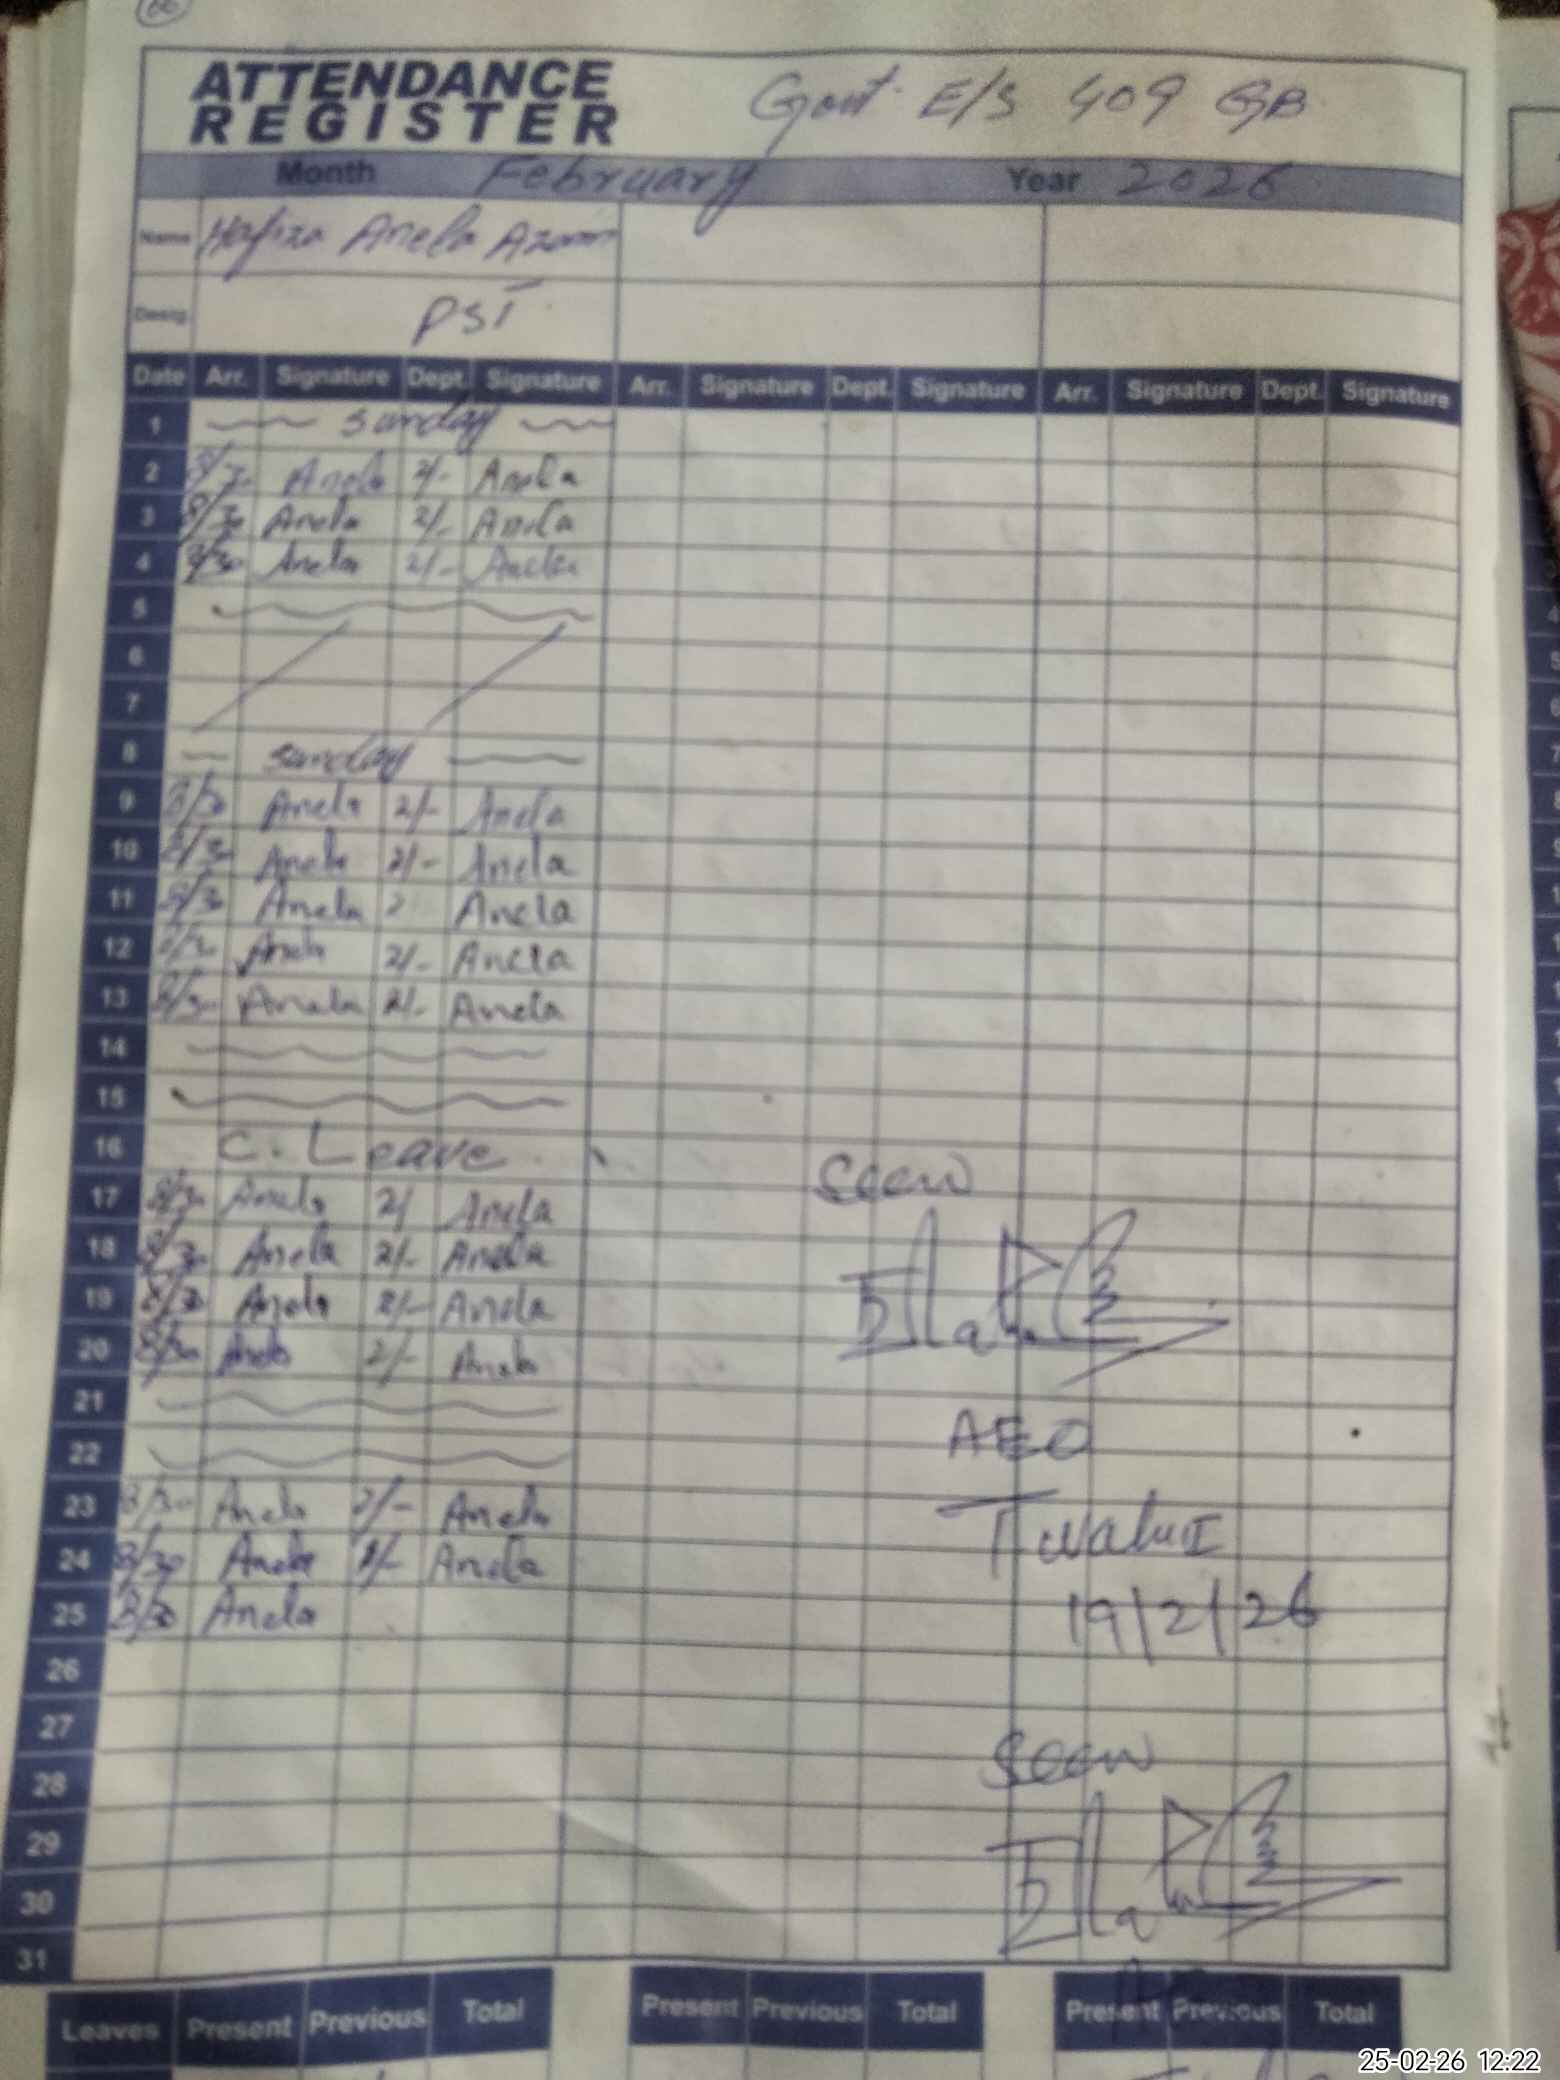 ATTENDANCE
REGISTER
Govt. E/S 409 GB
Month February Year 2026
Name Hafiza Anela Azam
Desig PST
Date Arr. Signature Dept. Signature Arr. Signature Dept. Signature Arr. Signature Dept. Signature
1 Sunday
2 8/30 Anela 2/- Anela
3 8/30 Anela 2/- Anela
4 8/30 Anela 2/- Anela
5
6
7
8 Sunday
9 8/30 Anela 2/- Anela
10 8/30 Anela 2/- Anela
11 8/30 Anela 2 Anela
12 8/30 Anela 2/- Anela
13 8/30 Anela 2/- Anela
14
15
16 C. Leave
17 8/30 Anela 2/ Anela
18 8/30 Anela 2/- Anela
19 8/30 Anela 2/- Anela
20 8/30 Anela 2/- Anela
21
22
23 8/30 Anela 2/- Anela
24 8/30 Anela 2/- Anela
25 8/30 Anela
26
27
28
29
30
31
Seen
AEO
19/2/26
Seen
Leaves Present Previous Total Present Previous Total Present Previous Total
25-02-26 12:22